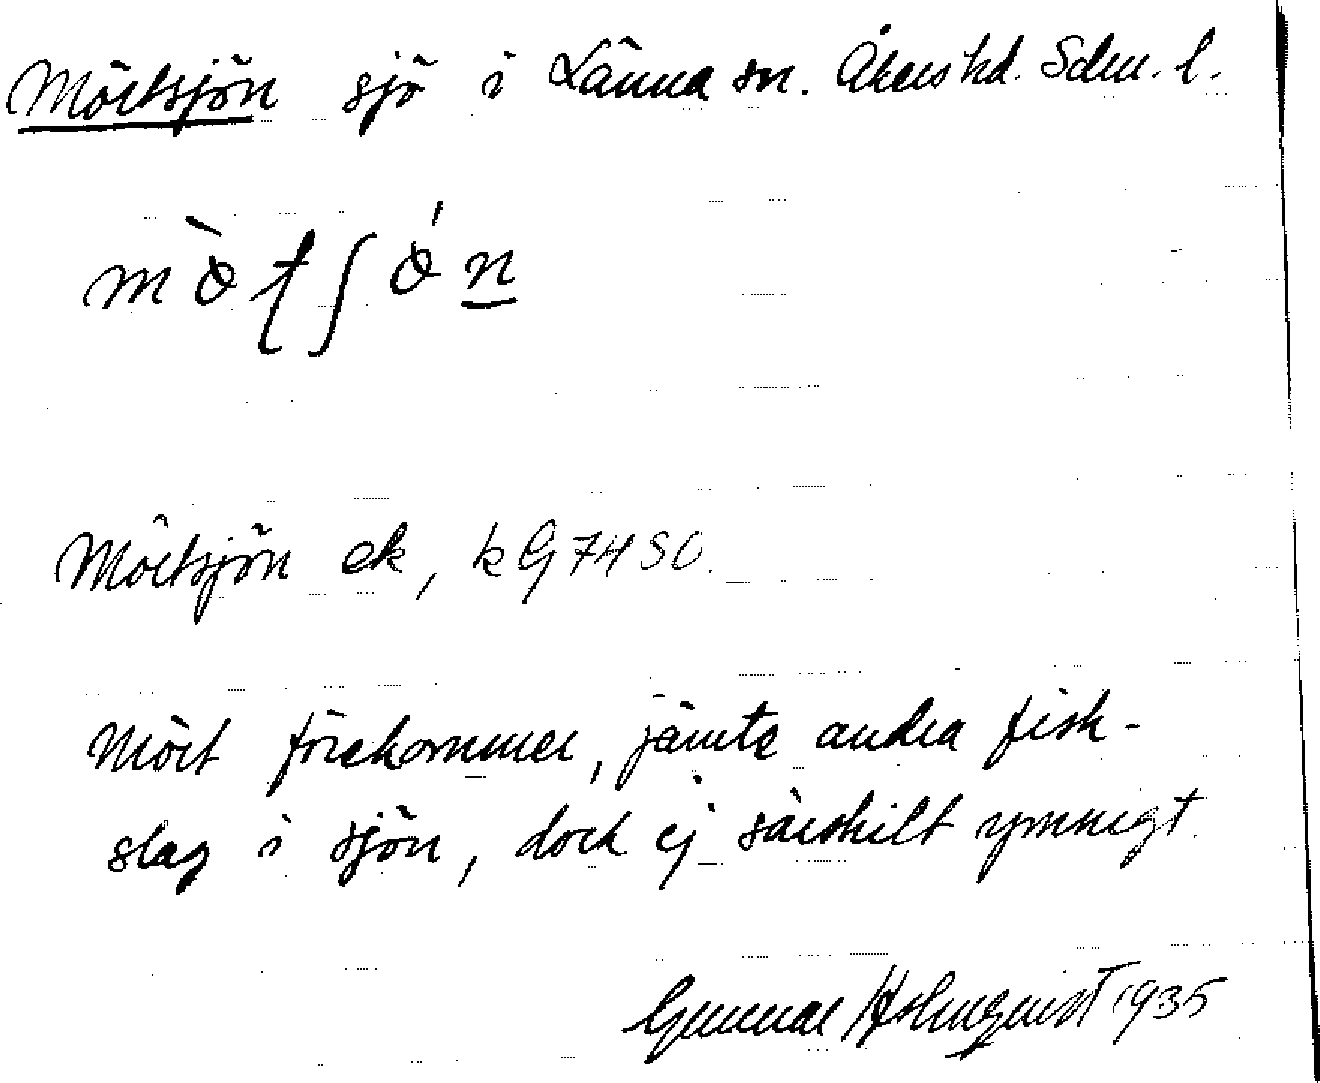 Mörtsjön sjö i Länna sn. Åkers hd. Södm. l.
Mörtsjön ek, k G 74 SO.
Mört förekommer, jämte andra fisk-
slag i sjön, dock ej särskilt ymnigt.
Gunnar Holmquist 1935